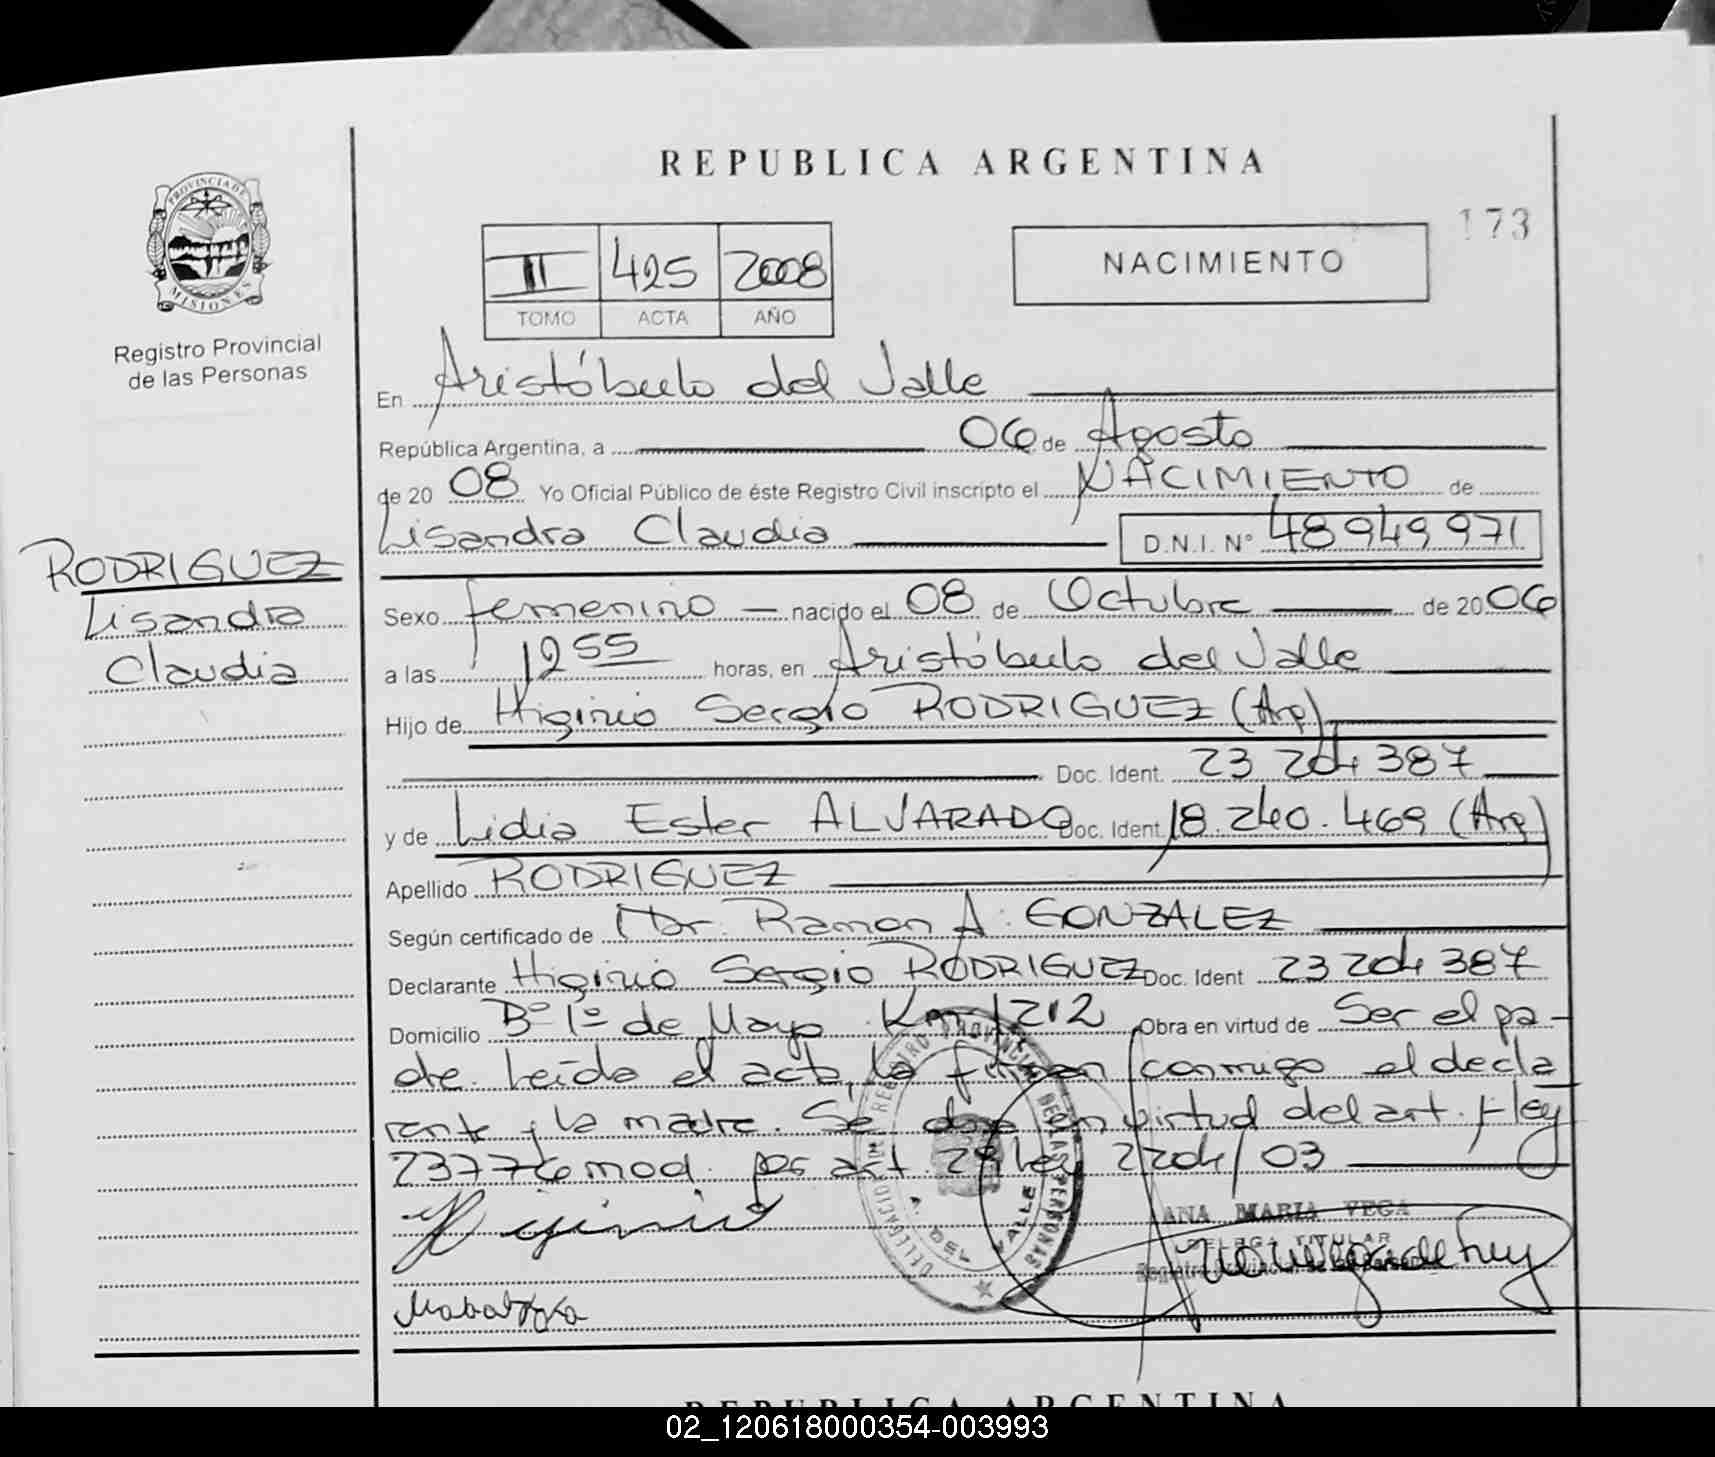 REPUBLICA ARGENTINA
173
II 425 2008
TOMO ACTA AÑO
NACIMIENTO
PROVINCIA DE
MISIONES
Registro Provincial
de las Personas
RODRIGUEZ
Lisandra
Claudia
En Aristóbulo del Valle
República Argentina, a 06 de Agosto
de 20 08 Yo Oficial Público de éste Registro Civil inscripto el NACIMIENTO de
Lisandra Claudia D.N.I. N° 48949971
Sexo femenino nacido el 08 de Octubre de 20 06
a las 12 55 horas, en Aristóbulo del Valle
Hijo de Higinio Sergio RODRIGUEZ (Arg)
Doc. Ident. 23 204 387
y de Lidia Ester ALVARADO Doc. Ident 18.240.469 (Arg)
Apellido RODRIGUEZ
Según certificado de Dr. Ramon A. GONZALEZ
Declarante Higinio Sergio RODRIGUEZ Doc. Ident 23 204 387
Domicilio B° 1° de Mayo Km 1212 Obra en virtud de Ser el pa-
dre. Leida el acta, la firman conmigo el decla
rante y la madre. Se en virtud del art. 1 ley
23776 mod. por art. 29 ley 2204/03
Higinio
DELEGACION REGISTRO PROVINCIAL DE LAS PERSONAS
A. DEL VALLE
ANA MARIA VEGA
DELEGA TITULAR
Registro Provincial de las Personas
REPUBLICA ARGENTINA
02_120618000354-003993